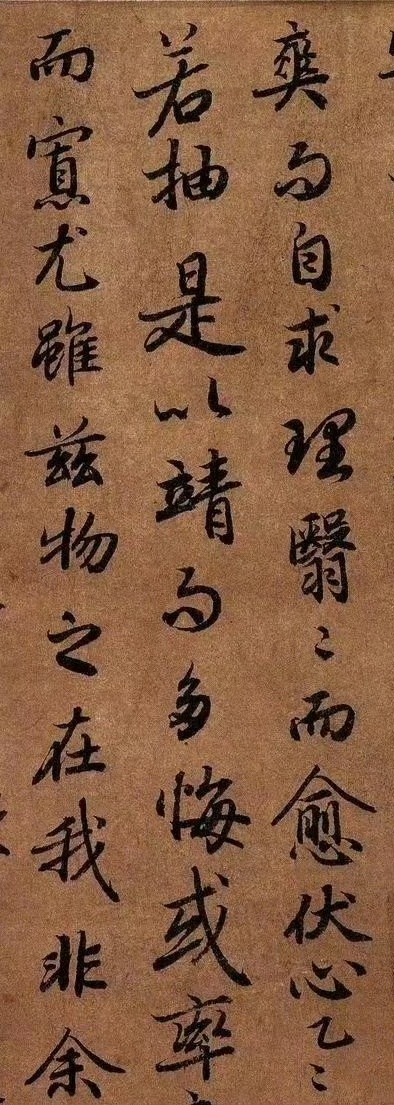 爽而自求理翳〻而愈伏心乙〻
若抽是以靖而多悔或率
而寡尤雖兹物之在我非余